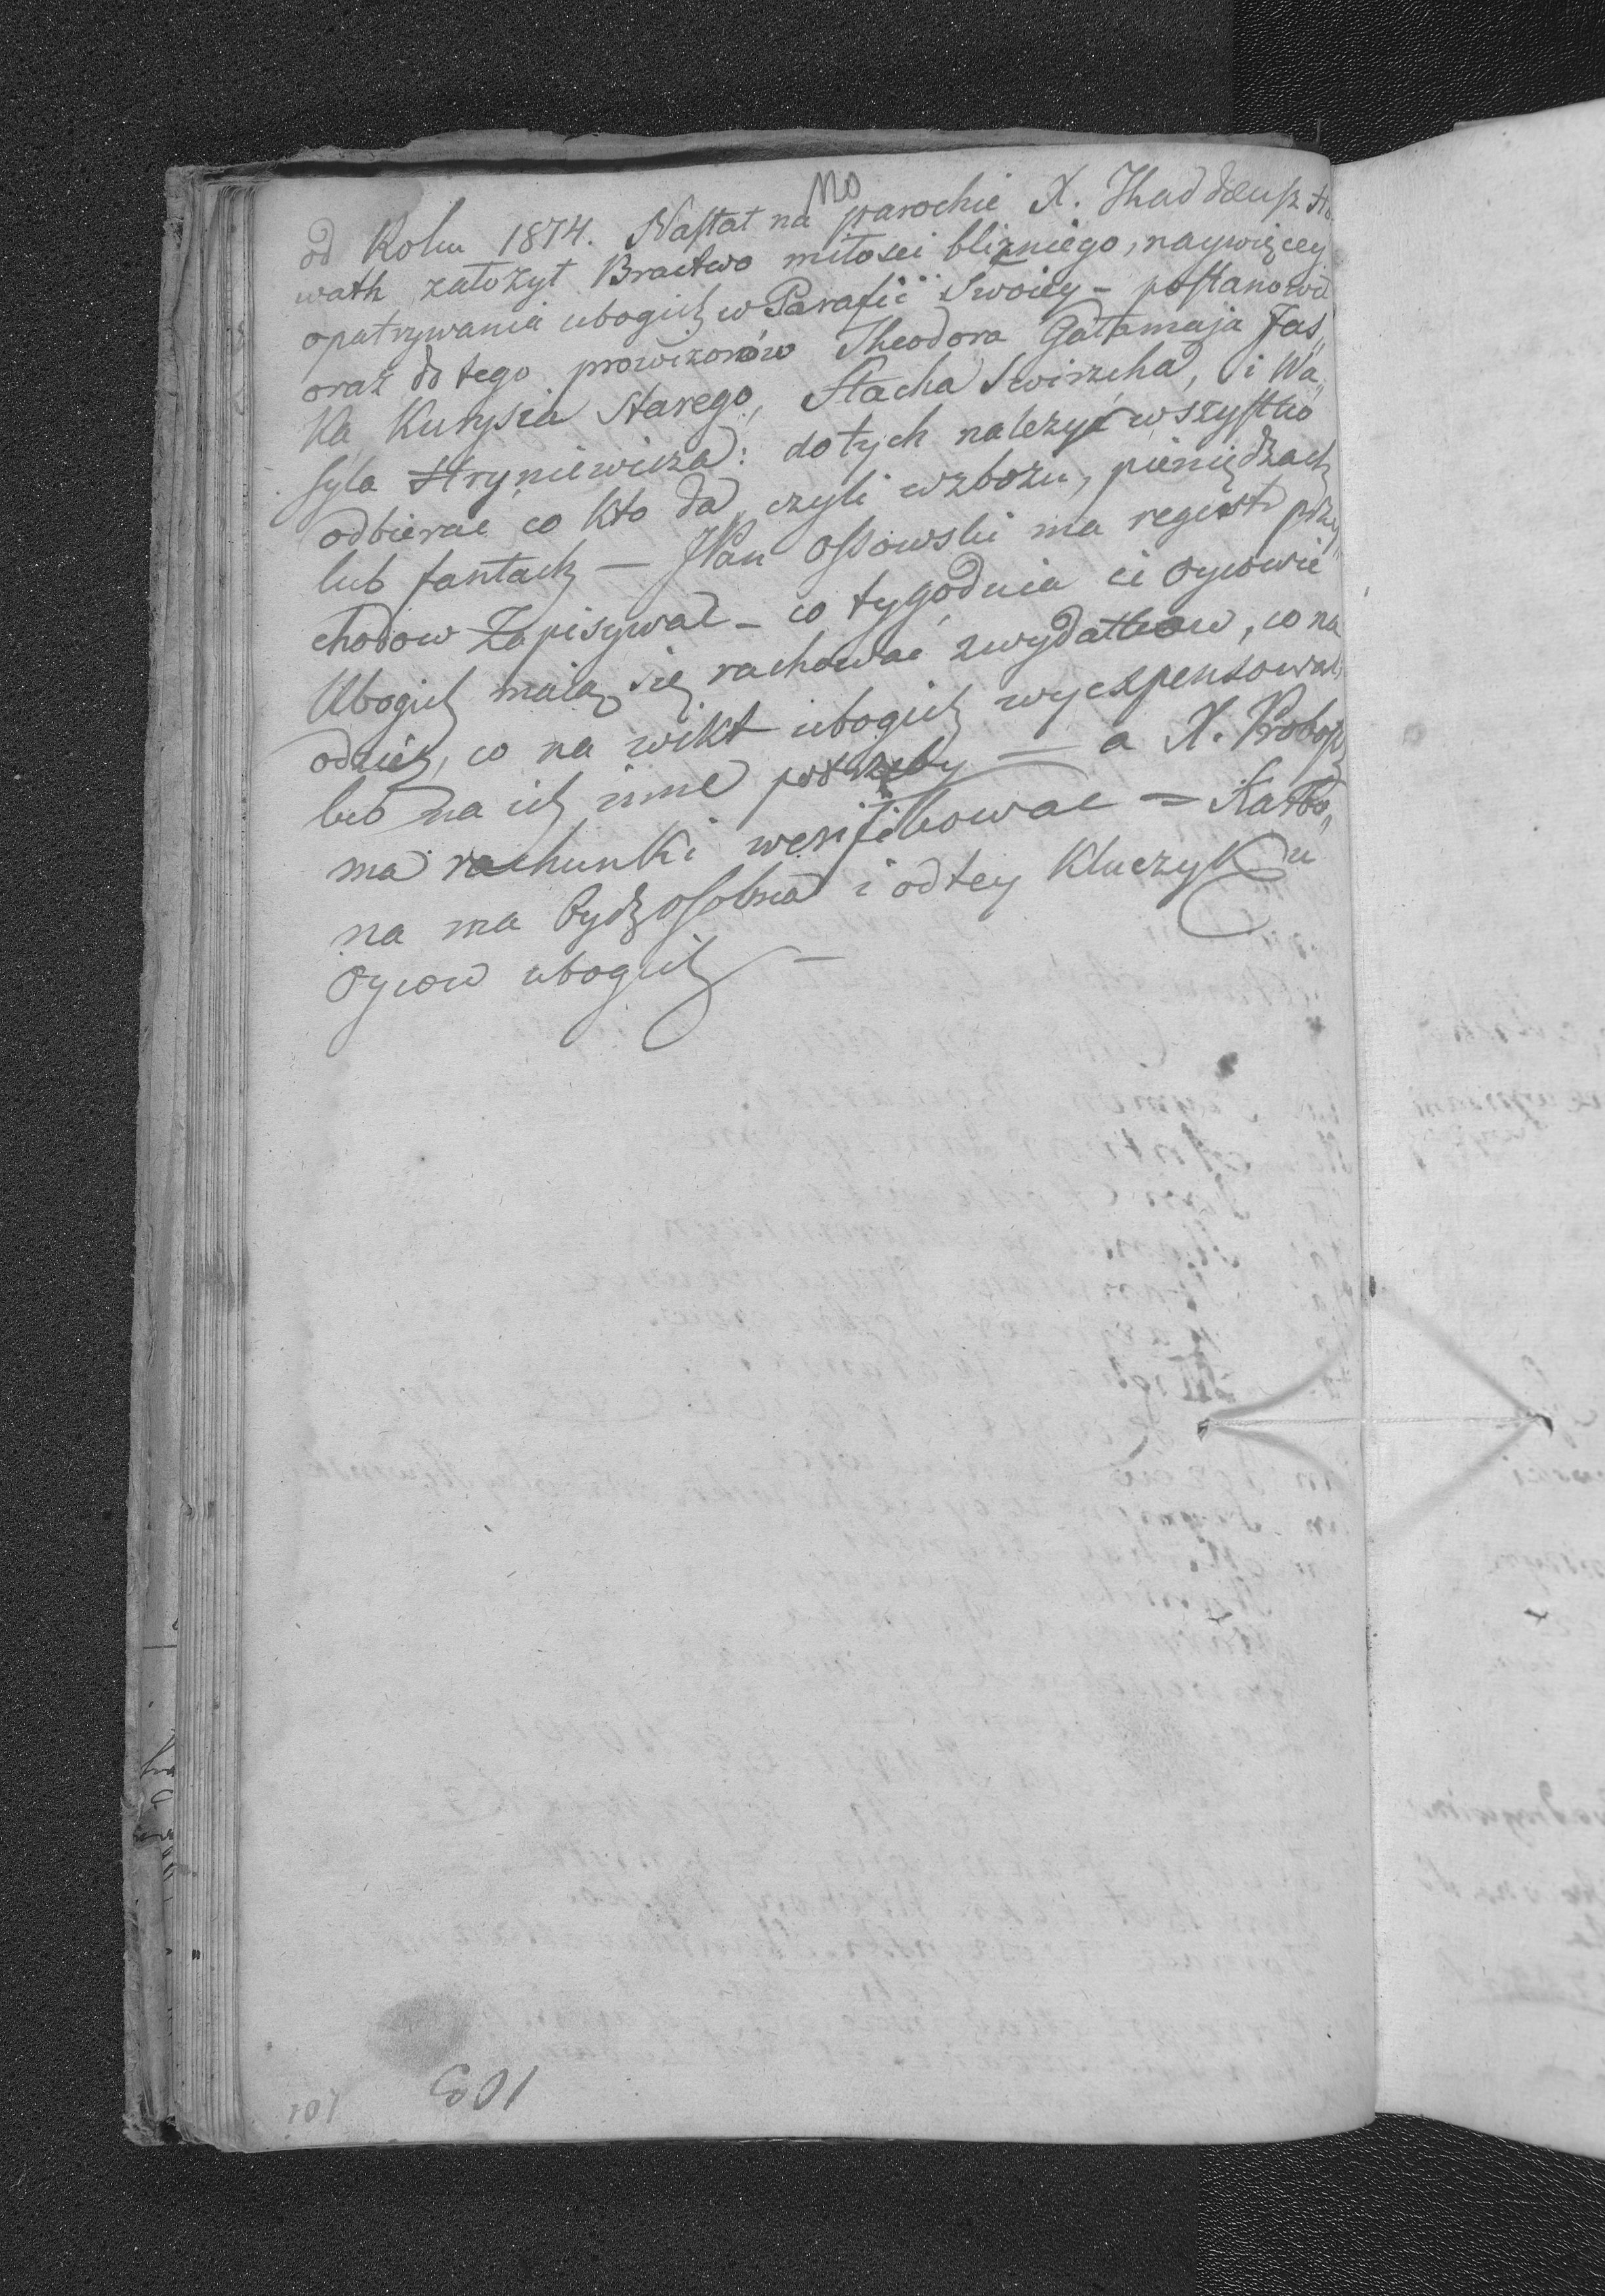 od Roku 1874. Nastał na parochie X. Thaddeusz Ho
wath założył Bractwo miłosci bliźniego, naywięcey
opatrywania ubogich w Parafii Swoiey - postanowił
oraz do tego prowizorów Theodora Gałamaja Jaś„
Ka Kurysia Starego, Stacha Swirzcha, i Wa„
syla Hryniewicza: do tych należyć wszystko
odbierać co kto da, czyli w zbożu, pieniędzach
lub fantach — JPan Ossowski ma regestr przy„
chodow Zapisywać - co tygodnia ci Oycowie
Ubogich maią się rachować z wydatkow, co na
odzież, co na wikt ubogich wyexpensowali
lub na ich inne potrzeby — a X. Probosz
ma rachunki werifikować = Karbo„
na ma bydz osobna i od tey kluczyk u
Oycow ubogich —
103
101